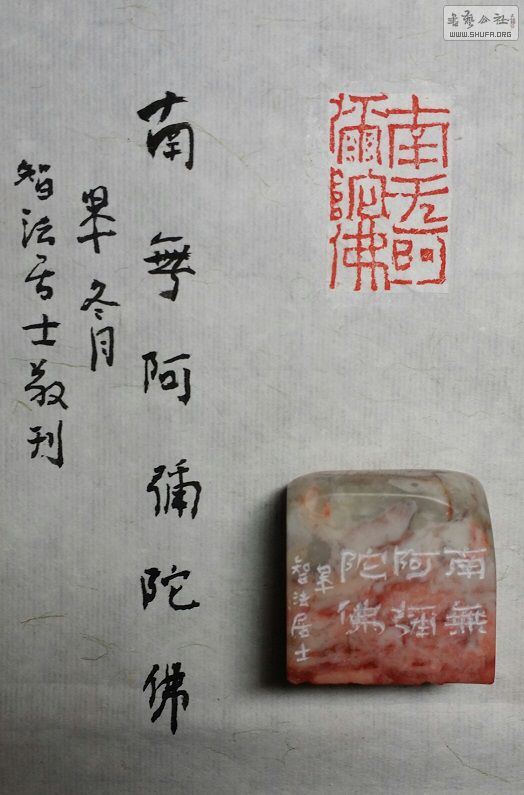 書藝公社
WWW.SHUFA.ORG
南无阿
彌陀佛
南無阿彌陀佛
冬月
智法居士敬刊
南無
阿彌
陀佛
智法居士